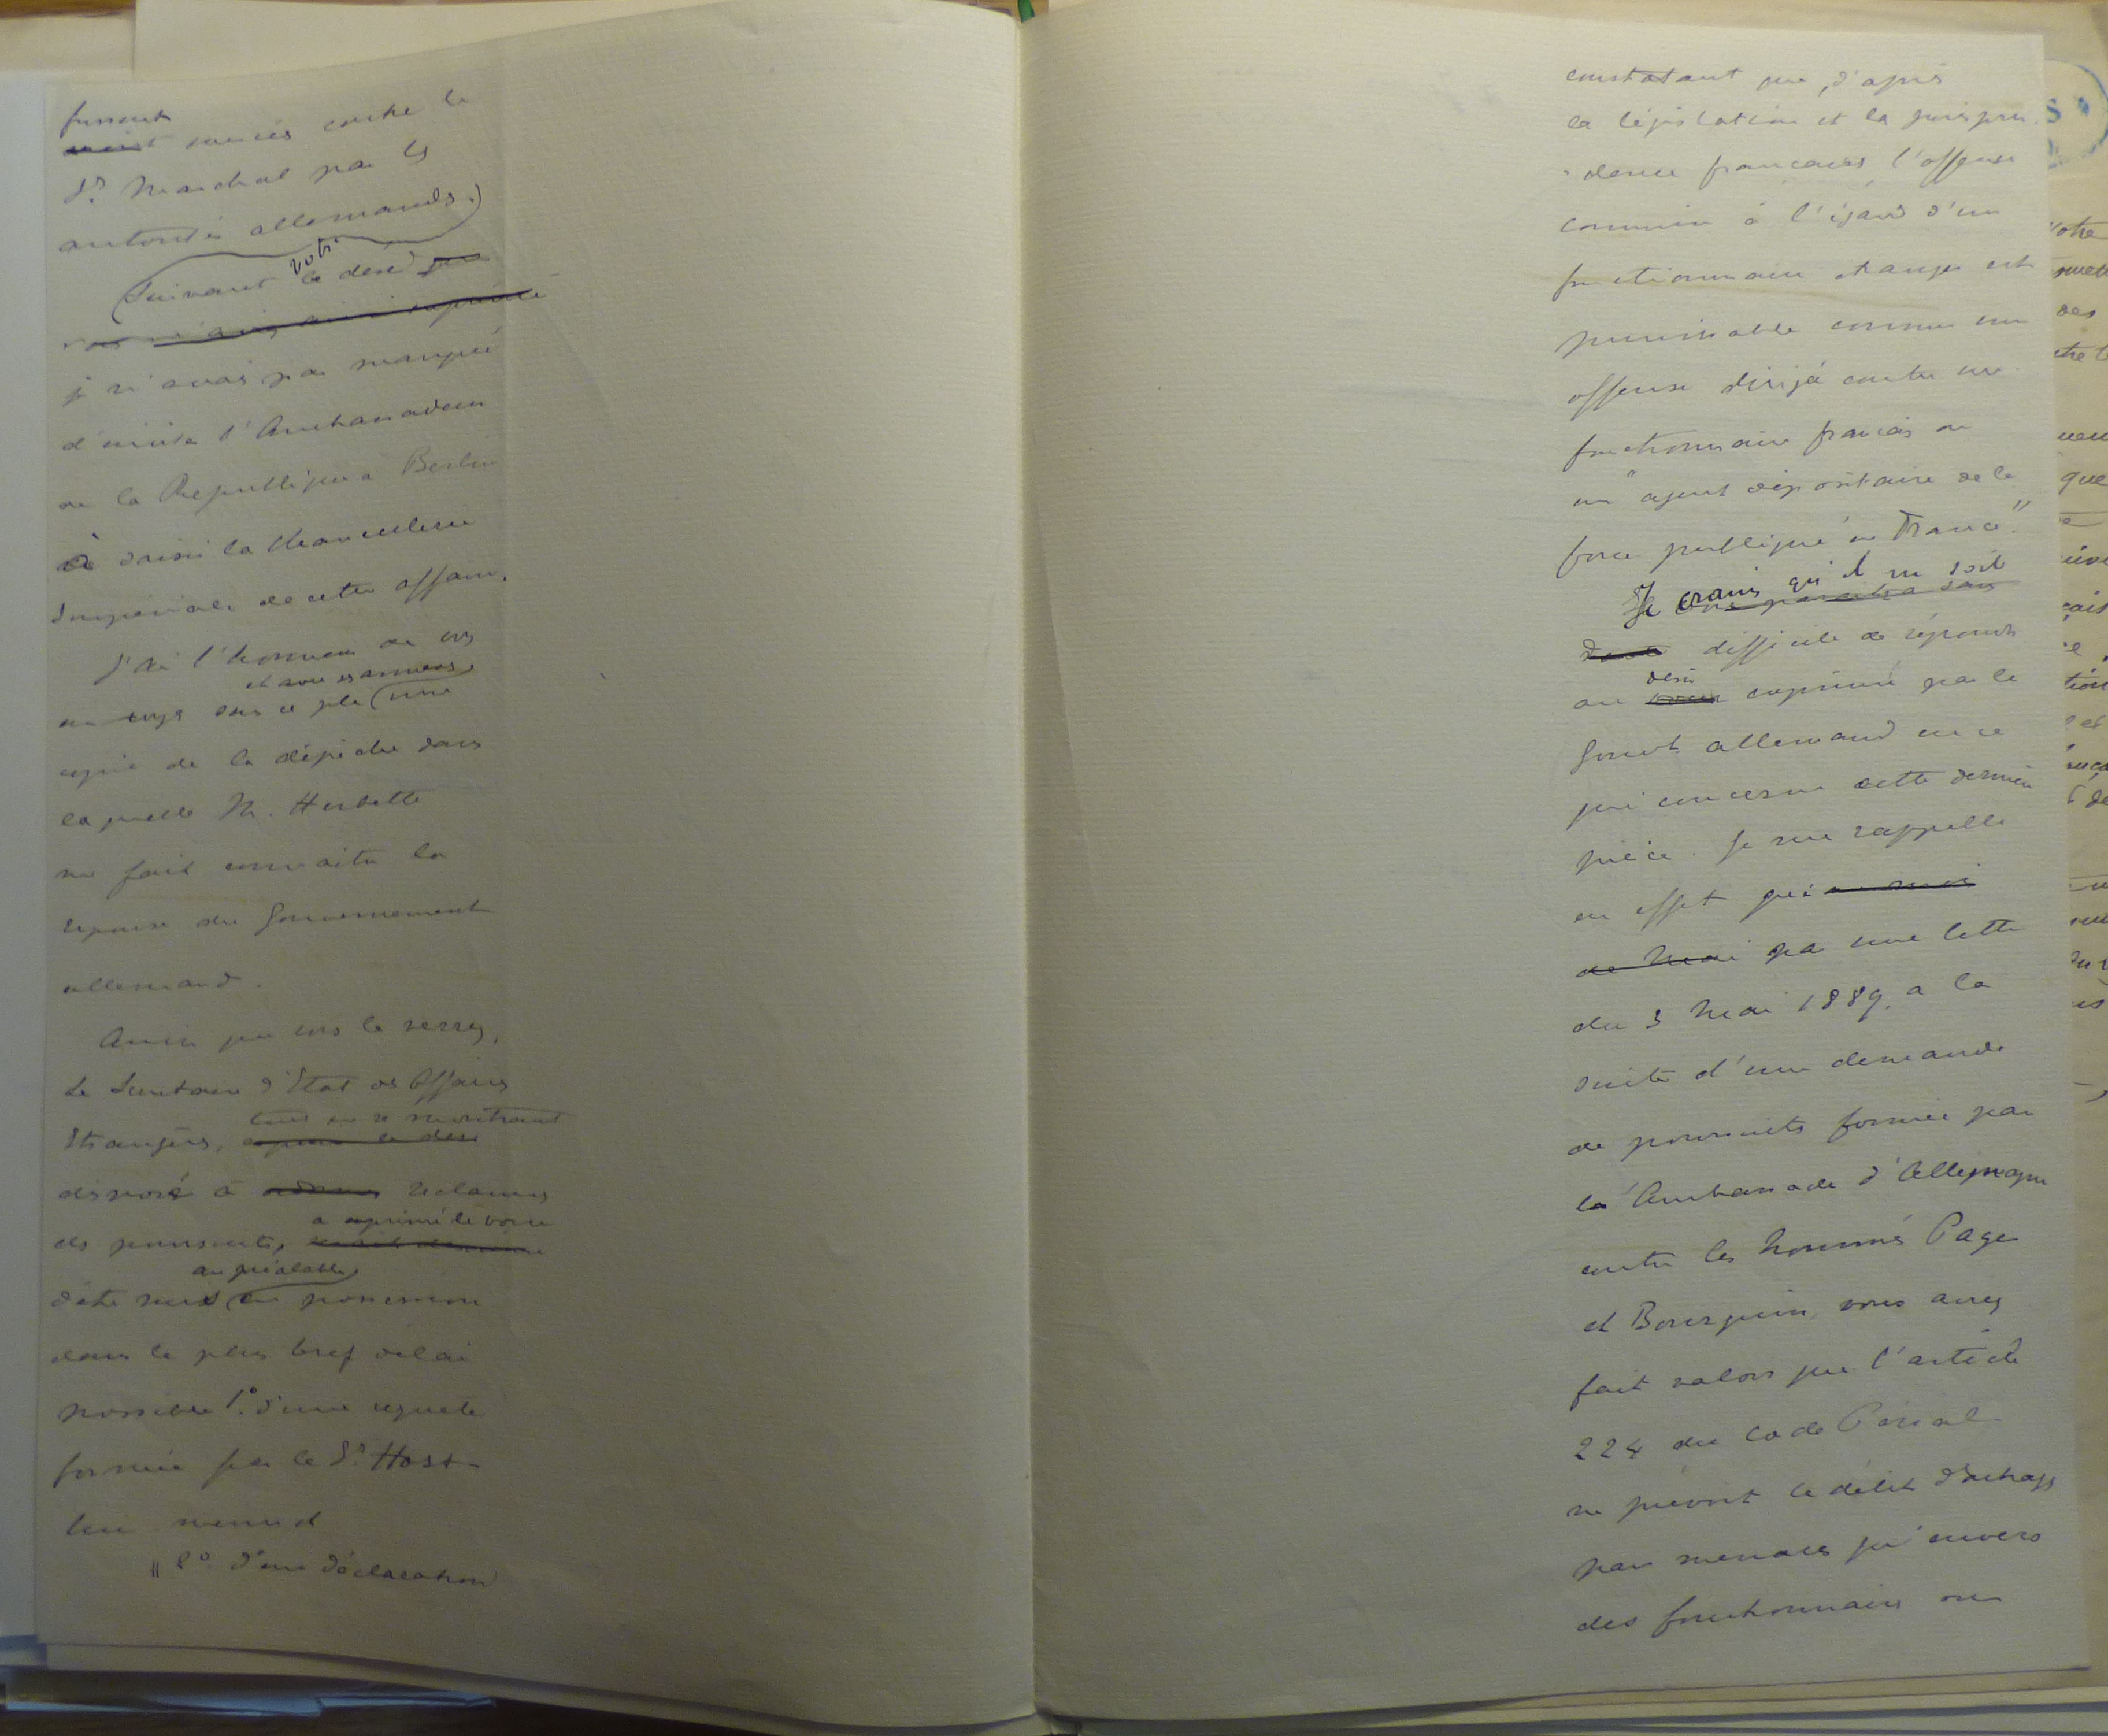 fussent
exercées contre le
Sr. Marchal par les
autorités allemandes.)
votre
(Suivant le désir que
vous m'aviez ainsi exprimé
je n'avais pas manqué
d'inviter l'Ambassadeur
de la République à Berlin
à saisir la Chancellerie
Impériale de cette affaire.
J'ai l'honneur de vous
et avec ses annexes
envoyer sous ce pli (une
copie de la dépêche dans
laquelle M. Herbette
me fait connaître la
réponse du Gouvernement
allemand.
Ainsi que vous le verrez,
le Secrétaire d'Etat des Affaires
tout en se montrant
Etrangères, exprime le désir
disposé à réclamer
a exprimé le voeu
des poursuites,
au préalable
d'être mis (en possession
dans le plus bref délai
possible 1° d'une requête
formée par le Sr. Host
lui même et
" 2° d'une déclaration
constatant que, d'après
la législation et la jurispru-
-dence françaises l'offense
commise à l'égard d'un
fonctionnaire étranger est
punissable comme une
offense dirigée contre un
fonctionnaire français ou
un "agent dépositaire de la
force publique en France".
Je crains qu'il ne soit
paraîtra sans
doute difficile de répondre
désir
au voeu exprimé par le
Gouvt allemand en ce
qui concerne cette dernière
pièce. Je me rappelle
en effet que
de Mai par une lettre
du 3 Mai 1889, à la
suite d'une demande
de poursuites formée par
la Ambassade d'Allemagne
contre les nommés Page
et Bourguin, vous avez
fait valoir que l'article
224 du Code Pénal
ne prévoit le délit d'outrages
par menaces qu'envers
des fonctionnaires ou